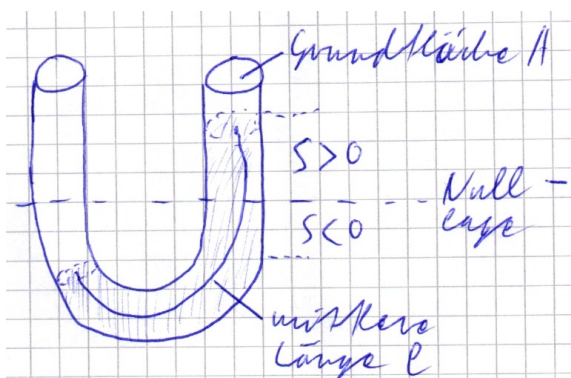 Grundfläche A
S>0
Null-
lage
S<0
mittlere
Länge l